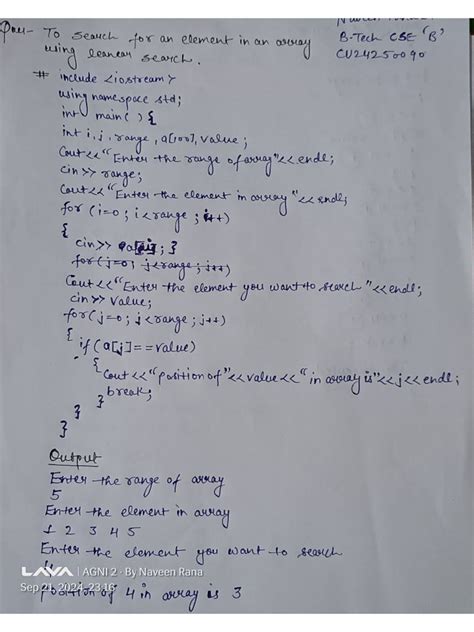 To search for an element in an array
using leanear search.
B-Tech CSE 'B'
CU24250090
# include <iostream>
using namespace std;
int main( ) {
int i, j, range, a[100], value;
Cout<<"Enter the range of array"<< endl;
cin>> range;
Cout<<"Enter the element in array"<< endl;
for (i=0; i<range; i++)
{
cin>> a[i]; }
for(j=0; j<range; j++)
Cout<<"Enter the element you want to search"<<endl;
cin>> value;
for(j=0; j<range; j++)
{
if (a[j]==value)
{
Cout<<"position of"<<value<<"in array is"<<j<<endl;
break;
}
}
}
Output
Enter the range of array
5
Enter the element in array
1 2 3 4 5
Enter the element you want to search
4
LAVA | AGNI 2 · By Naveen Rana
Sep 21, 2024, 23:16
position of 4 in array is 3